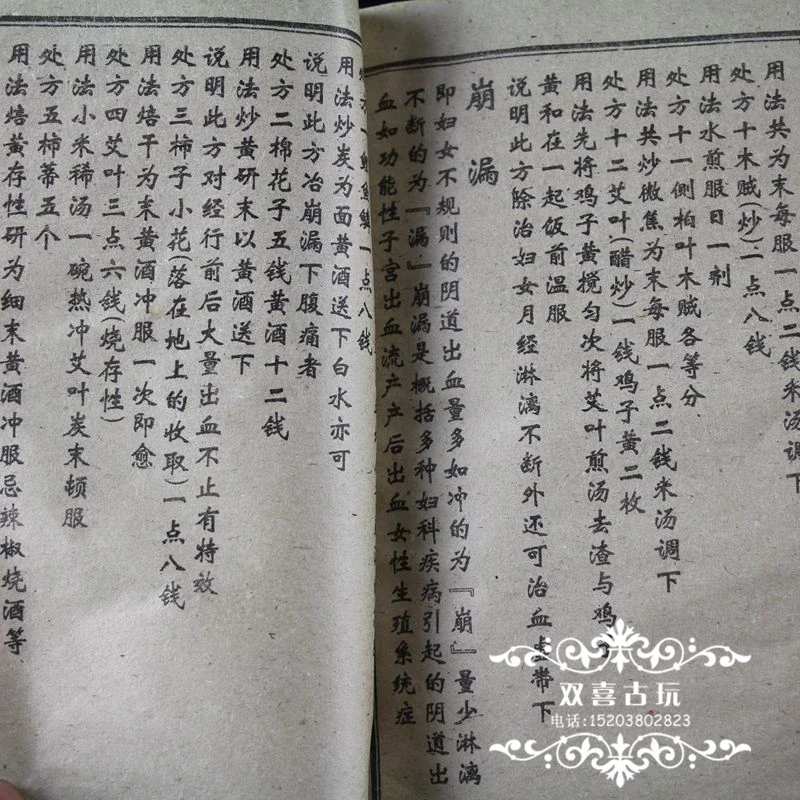 用法共为末每服一点二钱米汤调下
处方十木贼(炒)一点八钱
用法水煎服日一剂
处方十一侧柏叶木贼各等分
用法共炒微焦为末每服一点二钱米汤调下
处方十二艾叶(醋炒)一钱鸡子黄二枚
用法先将鸡子黄搅匀次将艾叶煎汤去渣与鸡子
黄和在一起饭前温服
说明此方除治妇女月经淋漓不断外还可治血虚带下
崩漏
即妇女不规则的阴道出血量多如冲的为『崩』量少淋漓
不断的为『漏』崩漏是概括多种妇科疾病引起的阴道出
血如功能性子宫出血流产产后出血女性生殖系统症
一点八钱
用法炒炭为面黄酒送下白水亦可
说明此方冶崩漏下腹痛者
处方二棉花子五钱黄酒十二钱
用法炒黄研末以黄酒送下
说明此方对经行前后大量出血不止有特效
处方三柿子小花(落在地上的收取)一点八钱
用法焙干为末黄酒冲服一次即愈
处方四艾叶三点六钱烧存性)
用法小米稀汤一碗热冲艾叶炭末顿服
处方五柿蒂五个
用法焙黄存性研为细末黄酒冲服忌辣椒烧酒等
双喜古玩
电话:15203802823